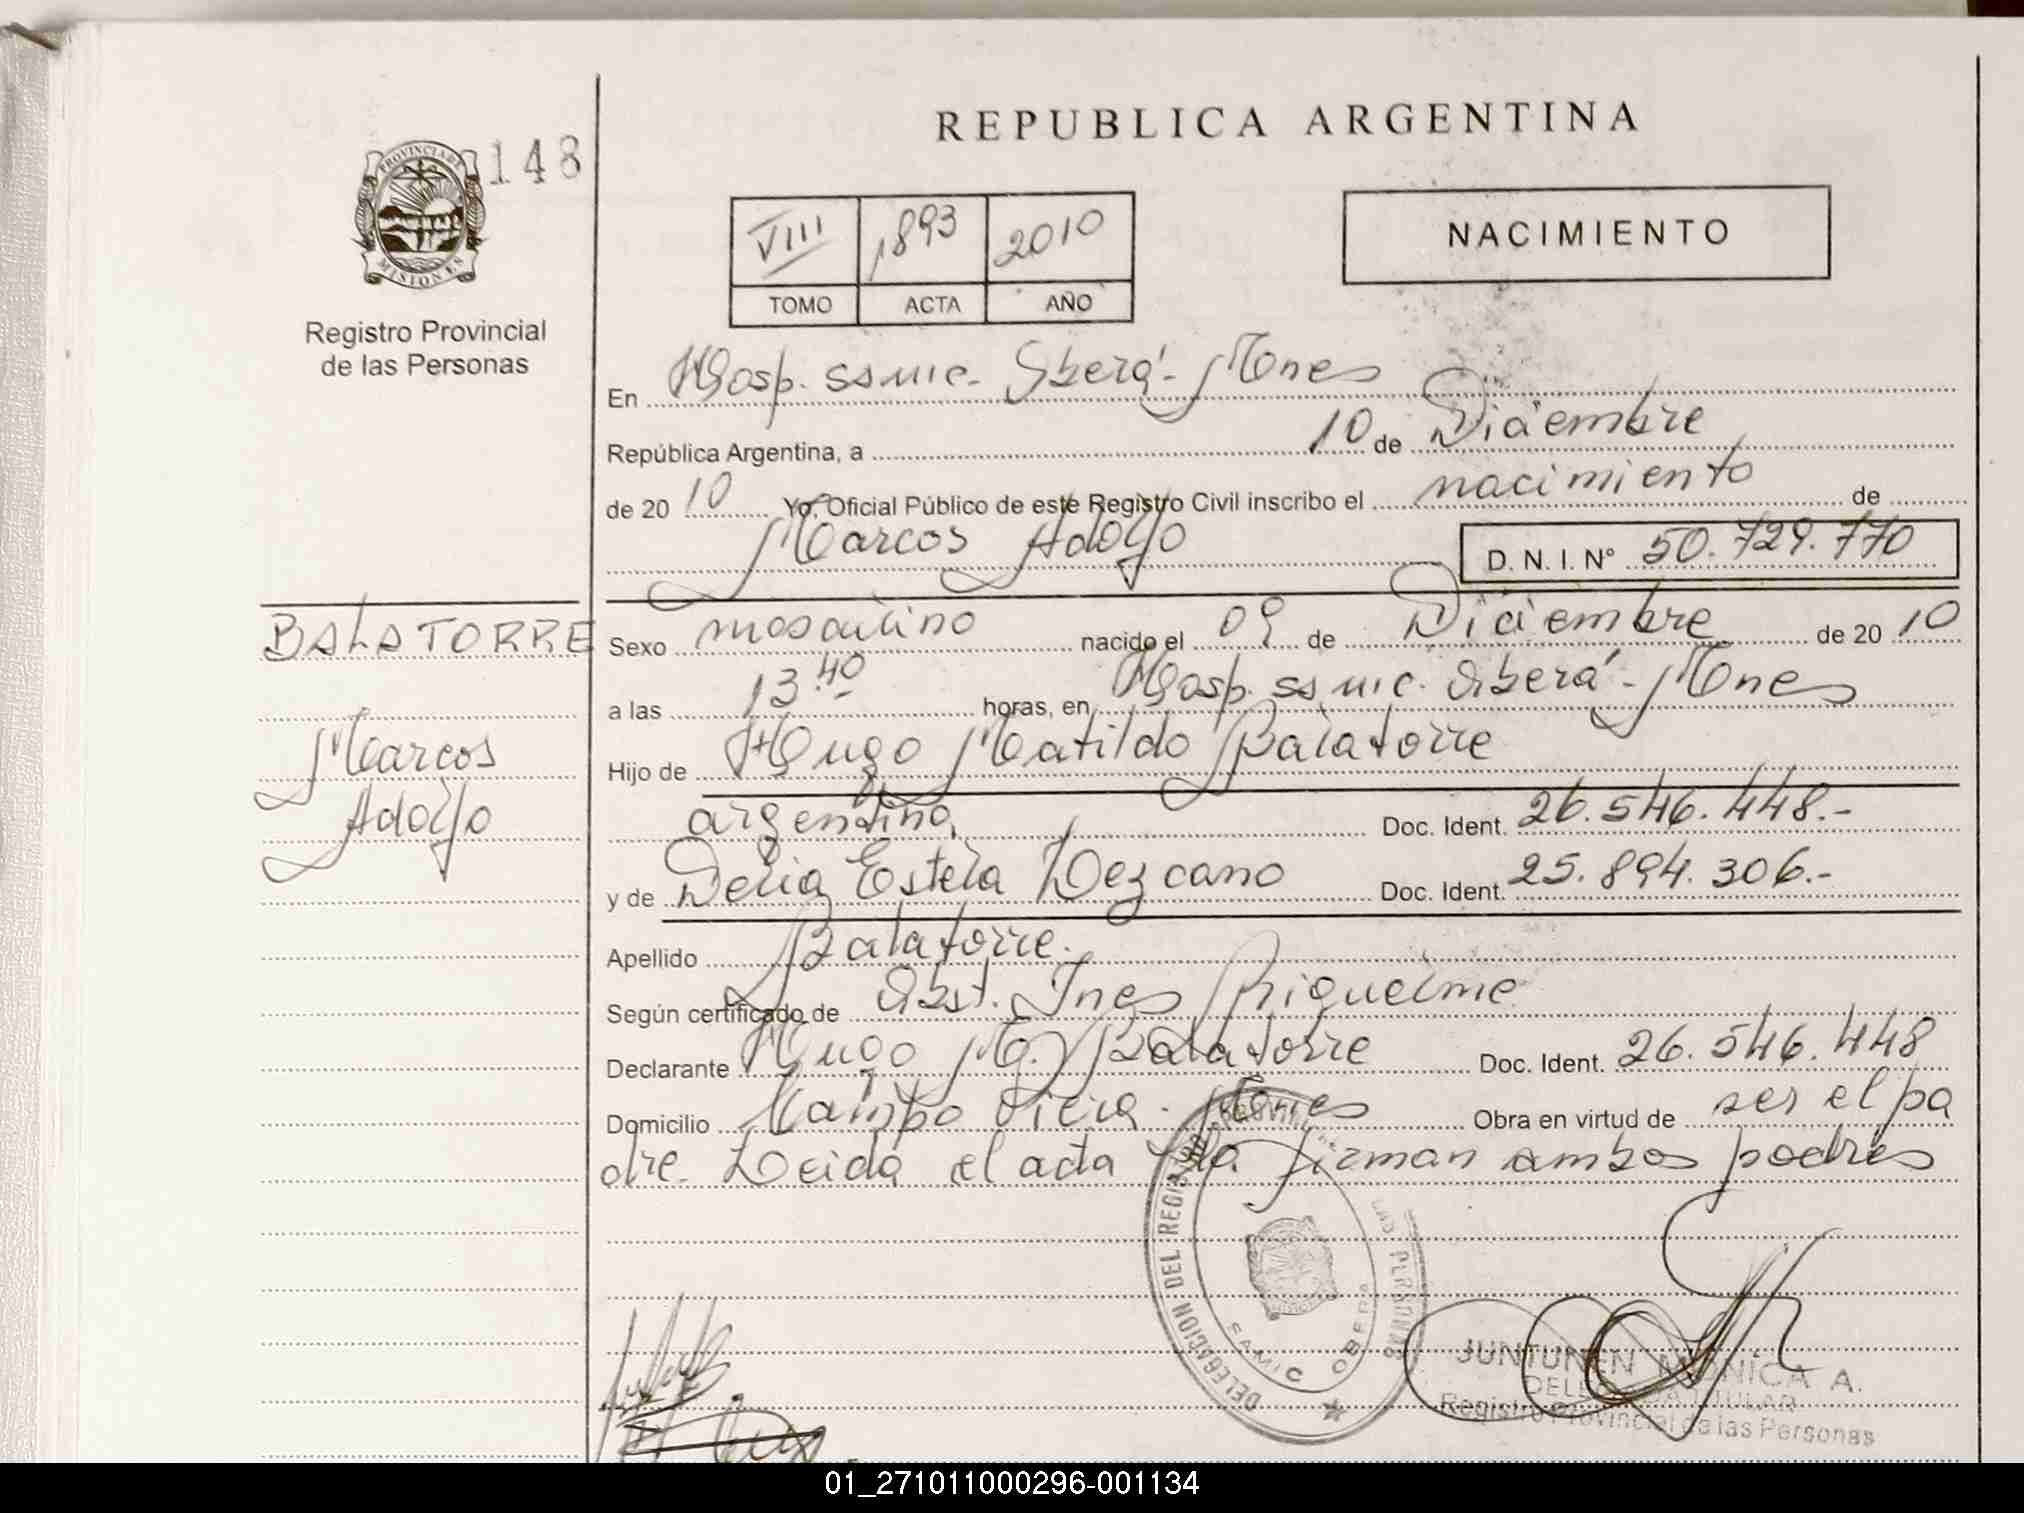 REPUBLICA ARGENTINA
148
PROVINCIA DE
MISIONES
Registro Provincial
de las Personas
VIII 1893 2010
TOMO ACTA AÑO
NACIMIENTO
En Hosp. Samic. Oberá - Mnes
República Argentina, a 10 de Diciembre
de 2010 Yo, Oficial Público de este Registro Civil inscribo el nacimiento de
Marcos Adolfo D. N. I. Nº 50.729.770
BALATORRE
Marcos
Adolfo
Sexo masculino nacido el 09 de Diciembre de 2010
a las 13.40 horas, en Hosp. Samic. Oberá - Mnes
Hijo de Hugo Matildo Balatorre
argentino, Doc. Ident. 26.546.448.-
y de Delia Estela Lezcano Doc. Ident. 25.894.306.-
Apellido Balatorre.
Según certificado de Obst. Ines Riquelme
Declarante Hugo M. Balatorre Doc. Ident. 26.546.448
Domicilio Campo Viera - Mnes Obra en virtud de ser el pa
dre. Leida el acta la firman ambos padres
DELEGACION DEL REGISTRO PROVINCIAL DE LAS PERSONAS
SAMIC OBERA
JUNTUNEN MONICA A.
DELEGADA TITULAR
Registro Provincial de las Personas
01_271011000296-001134